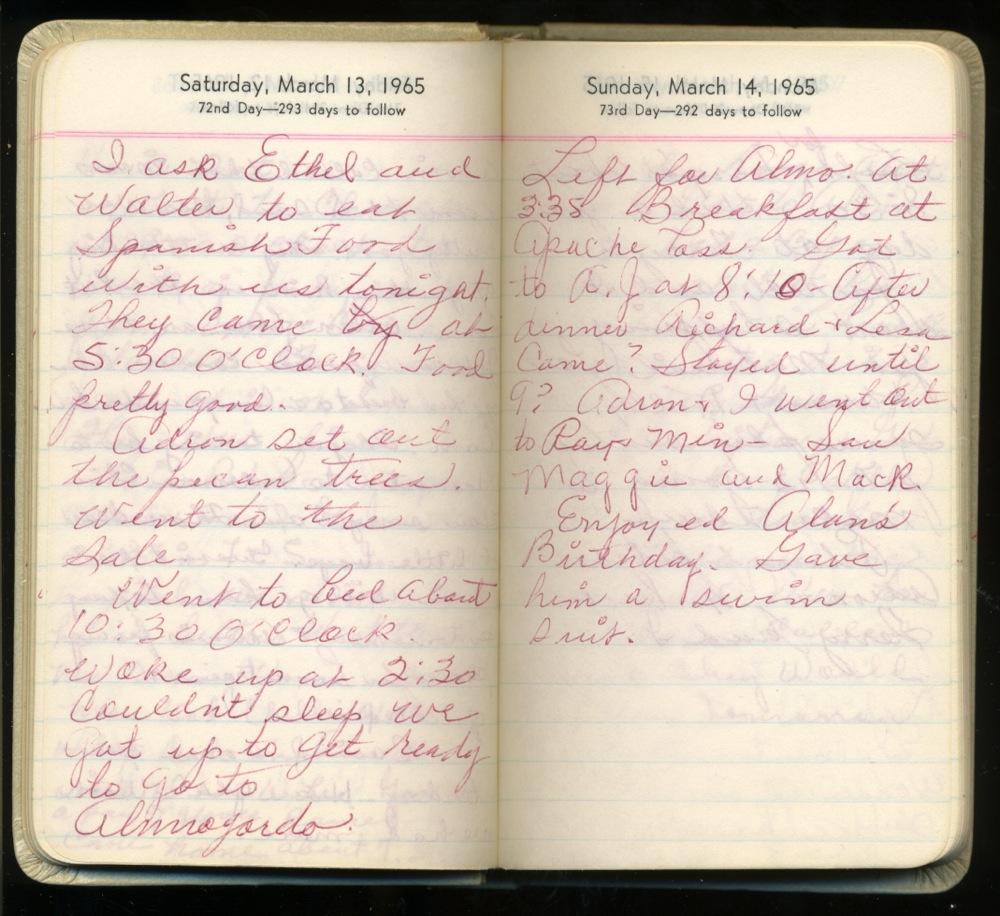 Saturday, March 13, 1965
72nd Day—293 days to follow
I ask Ethel and
Walter to eat
Spanish Food
with us tonight.
They came by at
5:30 O'Clock. Food
pretty good.
Adron set out
the pecan trees.
Went to the
Sale
Went to bed about
10:30 O'Clock.
Woke up at 2:30
Couldn't sleep we
got up to get ready
to go to
Almogordo.
Sunday, March 14, 1965
73rd Day—292 days to follow
Left for Almo. at
3:35 Breakfast at
Apache Pass. Got
to A. J at 8:10 - After
dinner Richard + Lesa
Came? Stayed until
9? Adron + I went out
to Rays Min - Saw
Maggie and Mack.
Enjoyed Alan's
Birthday. Gave
him a swim
suit.